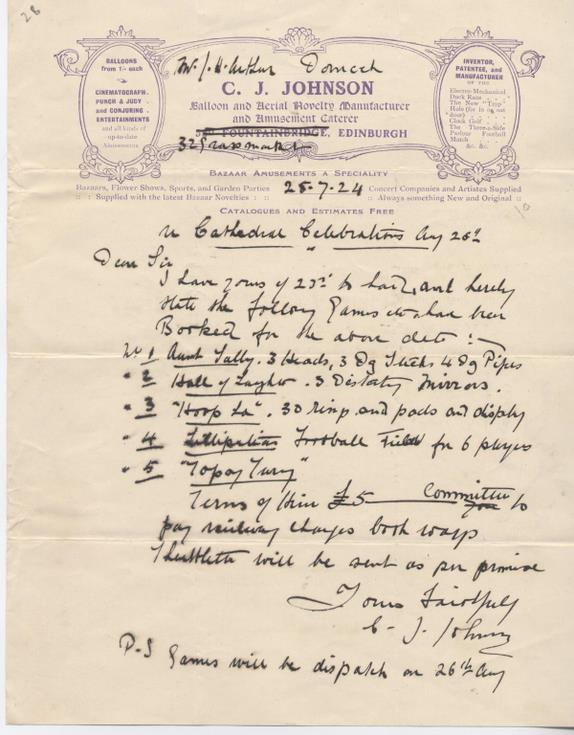 28
Mr J. H. Arthur Dornoch
C. J. JOHNSON
Balloon and Aerial Novelty Manufacturer
and Amusement Caterer
FOUNTAINBRIDGE, EDINBURGH
32 Grassmarket
BALLOONS
from 1/- each
CINEMATOGRAPH,
PUNCH & JUDY -
and CONJURING -
ENTERTAINMENTS
and all kinds of
up-to-date
Amusements
INVENTOR,
PATENTEE, and
MANUFACTURER
OF THE
Electro-Mechanical
Duck Race
The New "Trip"
Hole (for in or out
door)
Clock Golf
The Three-a-Side
Parlour Football
Match
&c. &c.
BAZAAR AMUSEMENTS A SPECIALITY
Bazaars, Flower Shows, Sports, and Garden Parties
: : Supplied with the latest Bazaar Novelties : :
25-7-24
Concert Companies and Artistes Supplied
:: Always something New and Original ::
CATALOGUES AND ESTIMATES FREE
10
Cathedral Celebrations Aug 28th
Dear Sir
I have yours of 23rd to hand, and hereby
state the following Games etc have been
Booked for the above date :-
No 1 Aunt Sally. 3 Heads, 3 Dg Sticks 4 Dg Pipes
" 2 Hall of Laughter. 3 Distorting Mirrors.
" 3 "Hoop La". 30 rings and pads and display
" 4 Lillipution Football Field for 6 players
" 5 "Topsy Turvy"
Terms of Hire £5 Committee to
pay railway charges both ways.
will be sent as per promise
Yours Faithfully
C. J. Johnson
P.S Games will be dispatch on 26th Aug